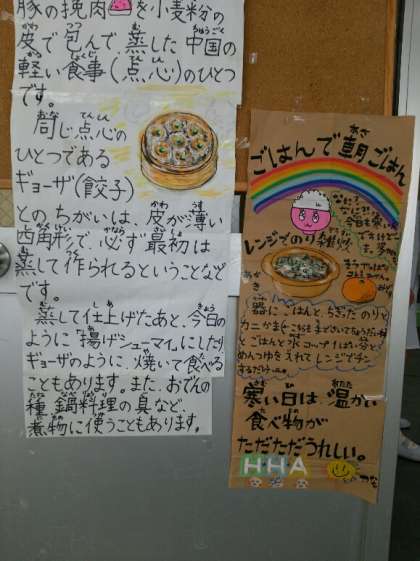 豚の挽肉を小麦粉の
皮で包んで、蒸した中国の
軽い食事(点心)のひとつ
です。
同じ点心の
ひとつである
ギョーザ(餃子)
とのちがいは、皮が薄い
四角形で、必ず最初は
蒸して作られるということなど
です。
蒸して仕上げたあと、今日の
ように「揚げシューマイ」にしたり
ギョーザのように、焼いて食べる
こともあります。また、おでんの
種、鍋料理の具など、
煮物に使うこともあります。
ごはんで朝ごはん
レンジでのり雑炊
器にごはんと、ちぎったのりと
カニかま
とごはんと水
めんつゆを入れてレンジでチン
するだけ
寒い日は温かい
食べ物が
ただただうれしい。
HHA